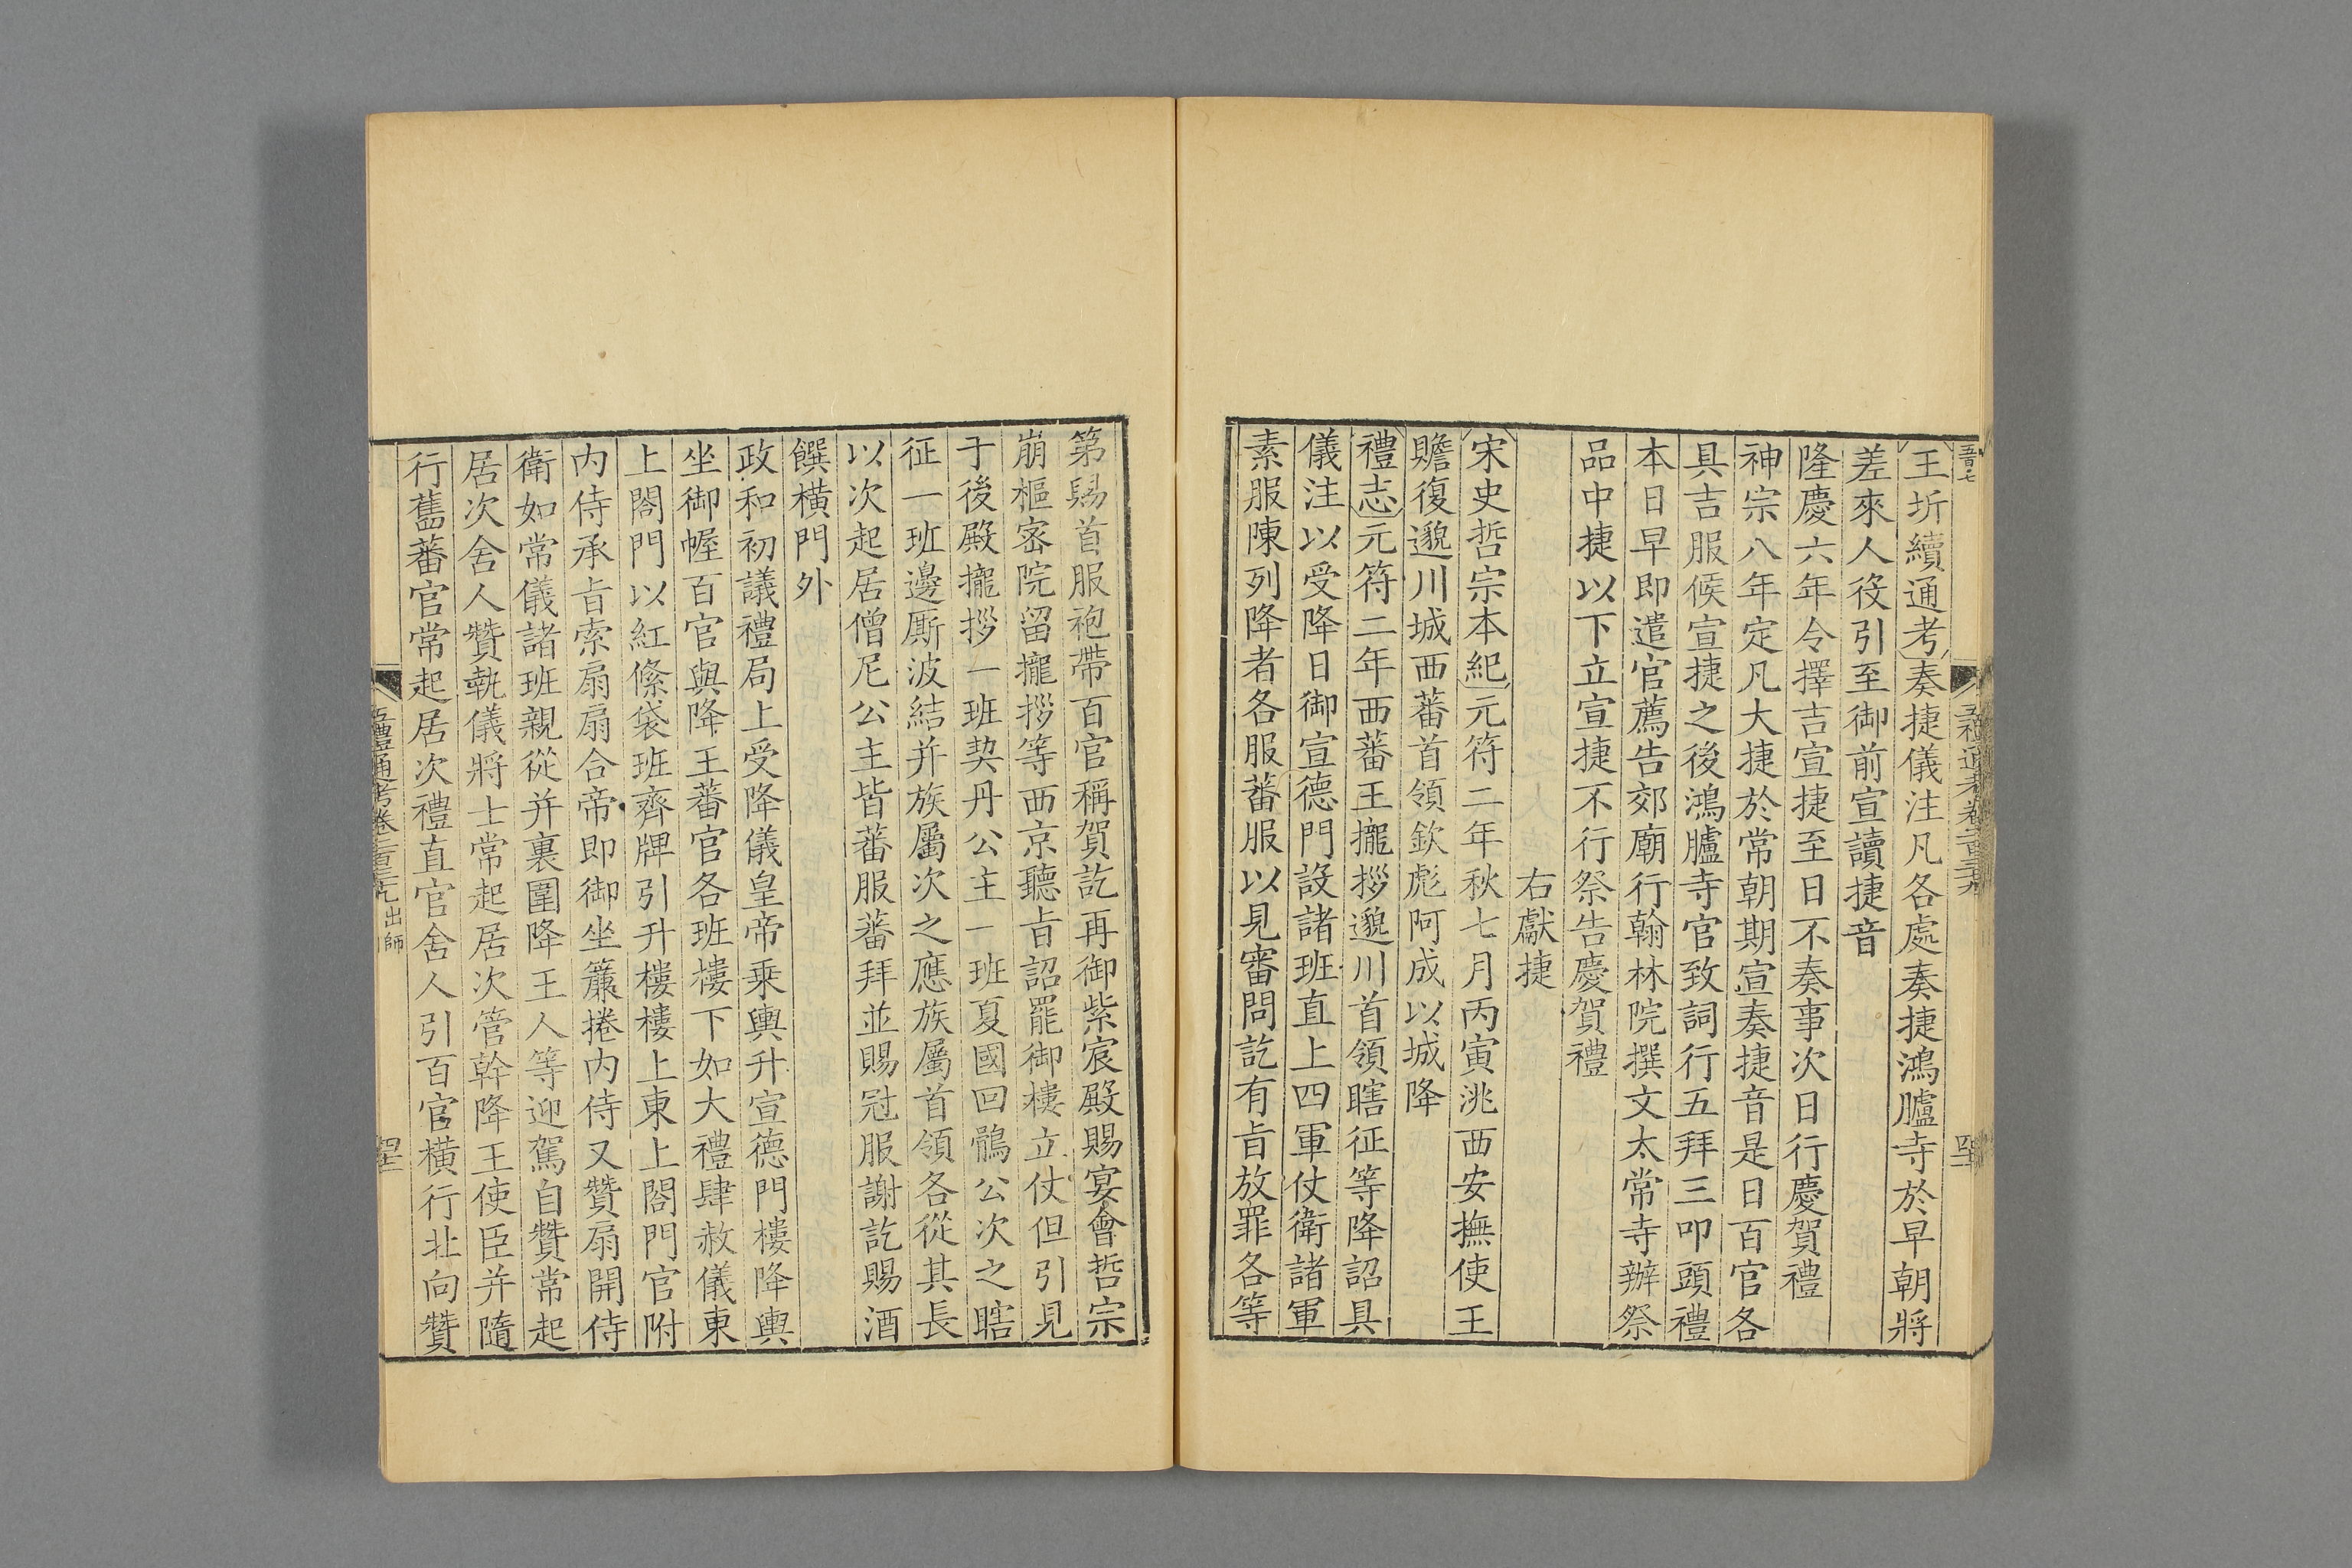 王圻續通考奏捷儀注凡各處奏捷鴻臚寺於早朝將
差來人役引至御前宣讀捷音
隆慶六年令擇吉宣捷至日不奏事次日行慶賀禮
神宗八年定凡大捷於常朝期宣奏捷音是日百官各
具吉服候宣捷之後鴻臚寺官致詞行五拜三叩頭禮
本日早即遣官薦告郊廟行翰林院撰文太常寺辦祭
品中捷以下立宣捷不行祭告慶賀禮
右獻捷
宋史哲宗本紀元符二年秋七月丙寅洮西安撫使王
贍復邈川城西蕃首領欽彪阿成以城降
禮志元符二年西蕃王攏拶邈川首領瞎征等降詔具
儀注以受降日御宣德門設諸班直上四軍仗衛諸軍
素服陳列降者各服蕃服以見審問訖有旨放罪各等
第賜首服袍帶百官稱賀訖再御紫宸殿賜宴會哲宗
崩樞密院留攏拶等西京聽旨詔罷御樓立仗但引見
于後殿攏拶一班契丹公主一班夏國回鶻公次之瞎
征一班邊厮波結并族屬次之應族屬首領各從其長
以次起居僧尼公主皆蕃服蕃拜並賜冠服謝訖賜酒
饌橫門外
政和初議禮局上受降儀皇帝乘輿升宣德門樓降輿
坐御幄百官與降王蕃官各班樓下如大禮肆赦儀東
上閤門以紅絛袋班齊牌引升樓樓上東上閤門官附
內侍承旨索扇扇合帝即御坐簾捲內侍又贊扇開侍
衛如常儀諸班親從并裏圍降王人等迎駕自贊常起
居次舍人贊執儀將士常起居次管幹降王使臣并隨
行舊蕃官常起居次禮直官舍人引百官橫行北向贊
五禮通考卷二百三十九 出師